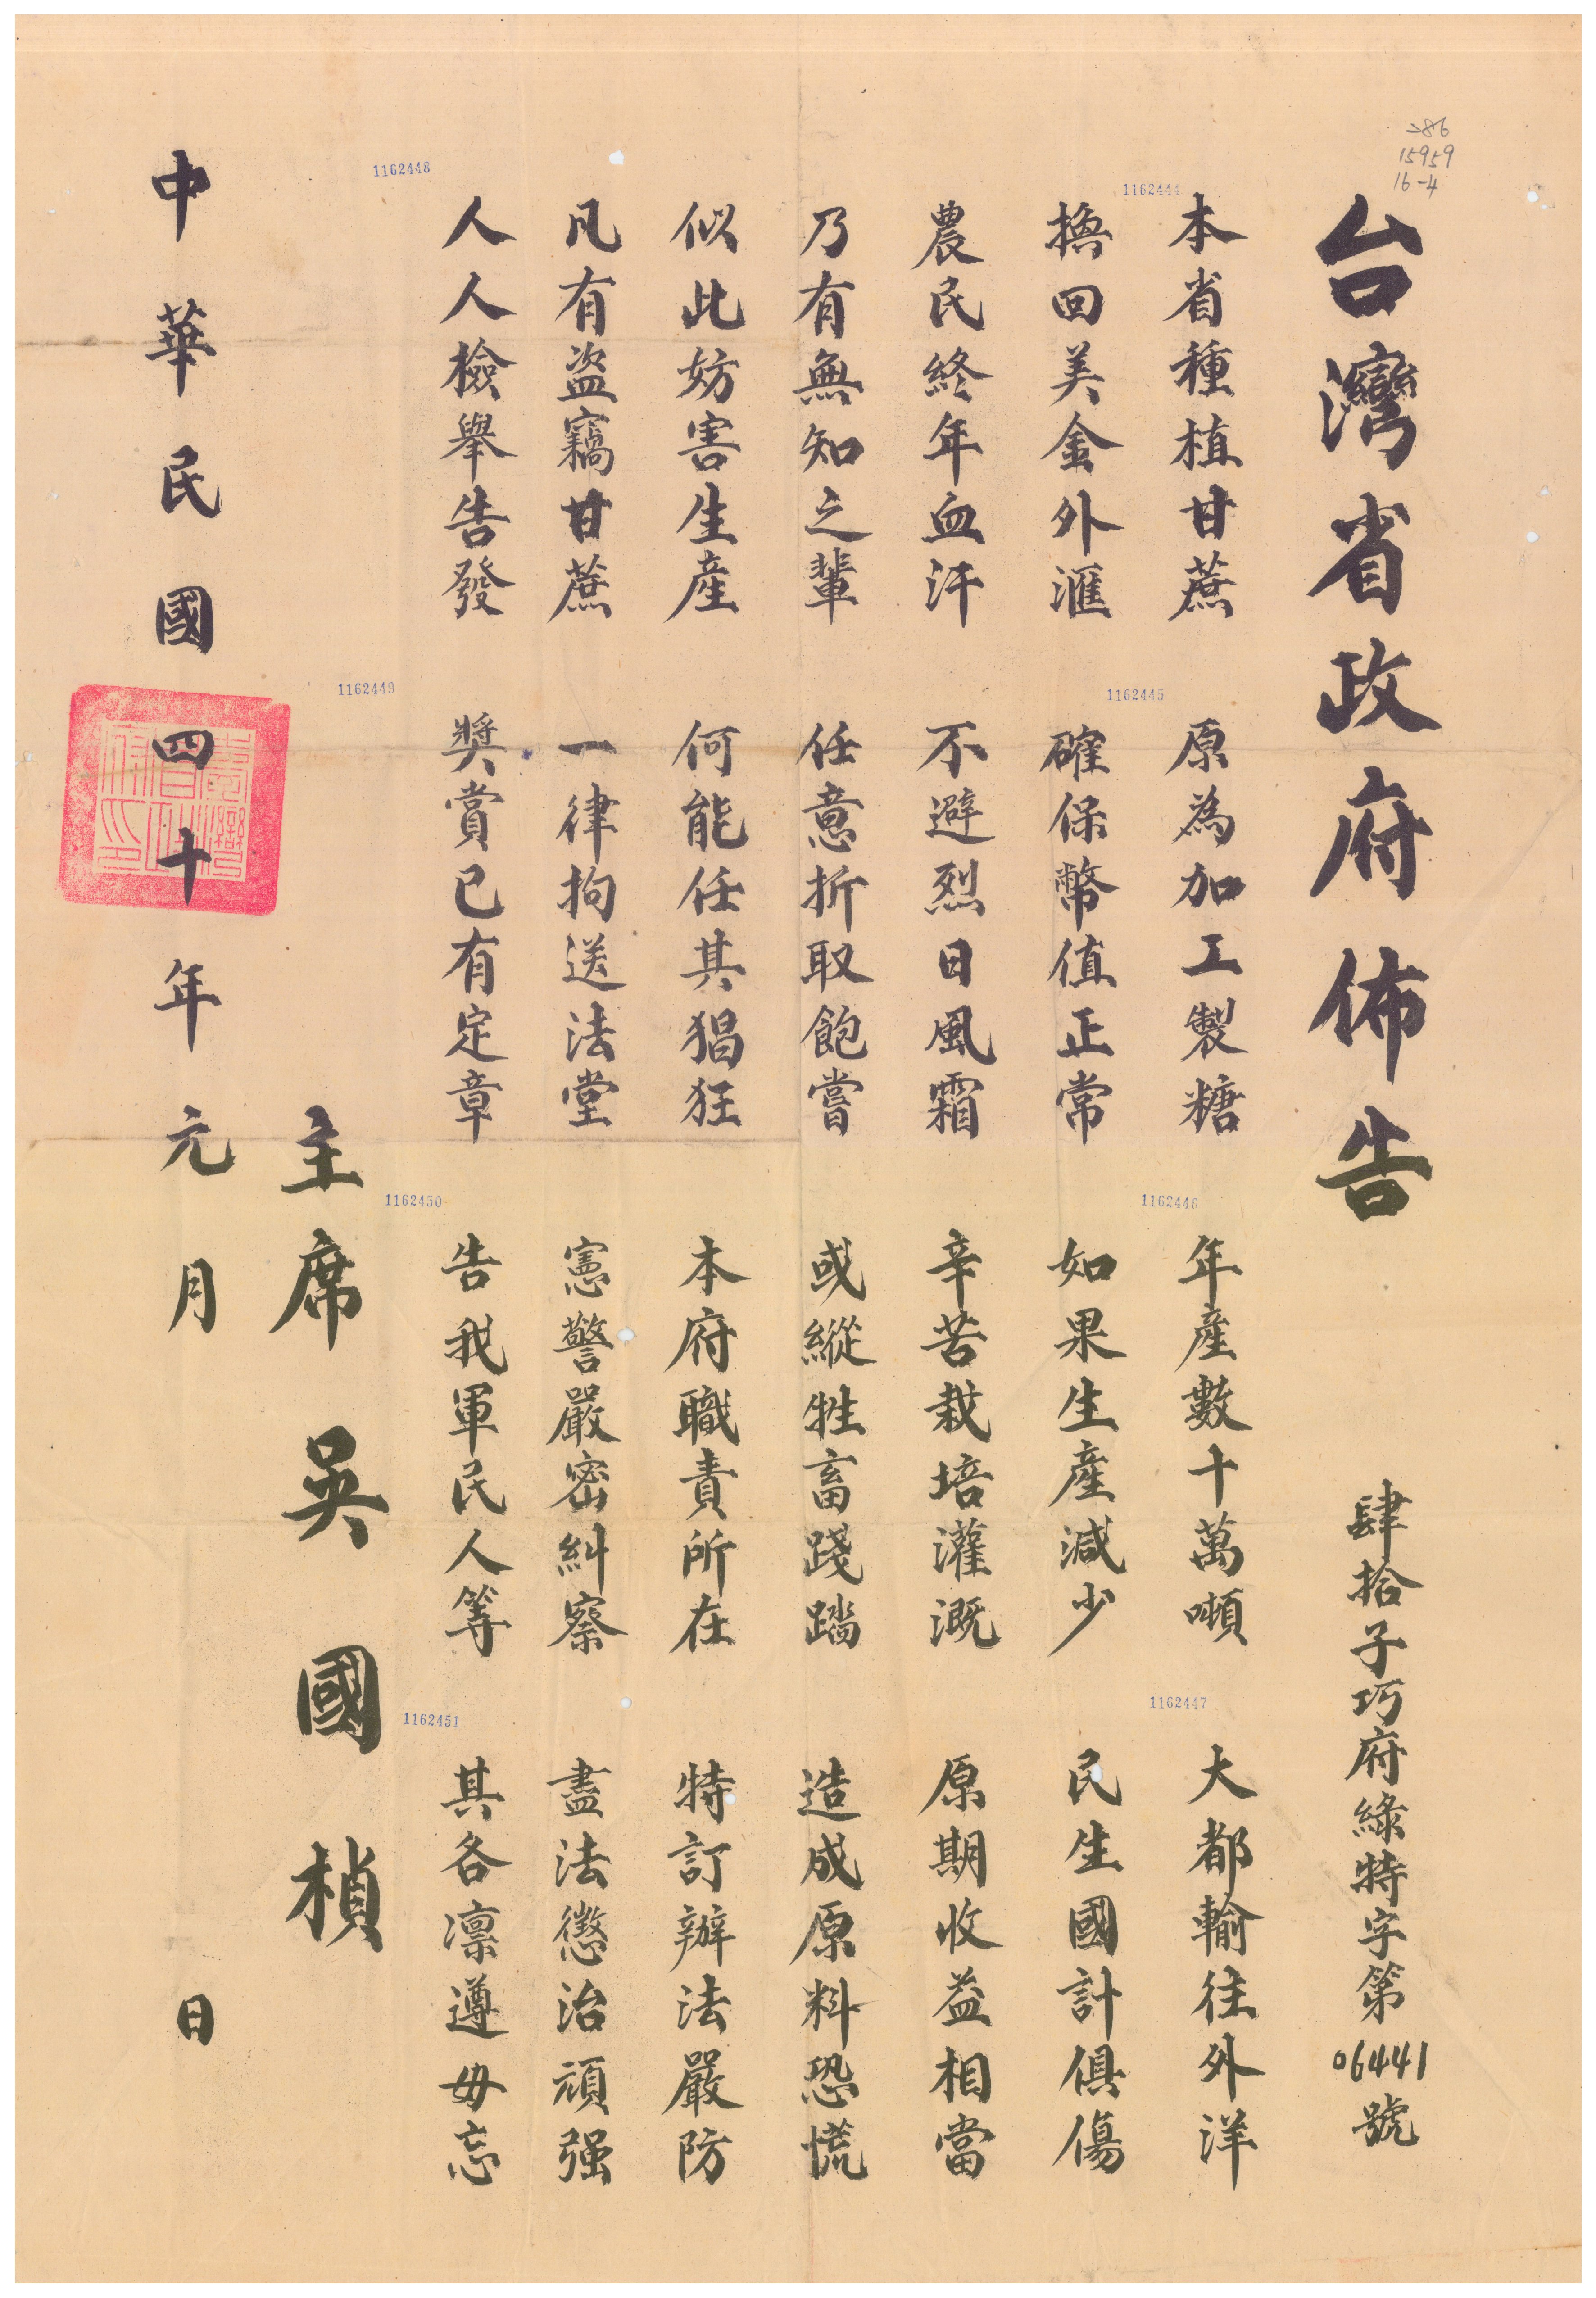 286
15959
16-4
台灣省政府佈告
肆拾子巧府綠特字第06441號
1162444
1162445
1162446
1162447
本省種植甘蔗 原為加工製糖 年產數十萬噸 大都輸往外洋
換回美金外滙 確保幣值正常 如果生產減少 民生國計俱傷
農民終年血汗 不避烈日風霜 辛苦栽培灌溉 原期收益相當
乃有無知之輩 任意折取飽嘗 或縱牲畜踐踏 造成原料恐慌
似此妨害生產 何能任其猖狂 本府職責所在 特訂辦法嚴防
凡有盜竊甘蔗 一律拘送法堂 憲警嚴密糾察 盡法懲治頑强
人人檢舉告發 獎賞已有定章 告我軍民人等 其各凛遵毋忘
1162448
1162449
1162450
1162451
主席 吳國楨
中華民國四十年元月 日
臺灣省政府印